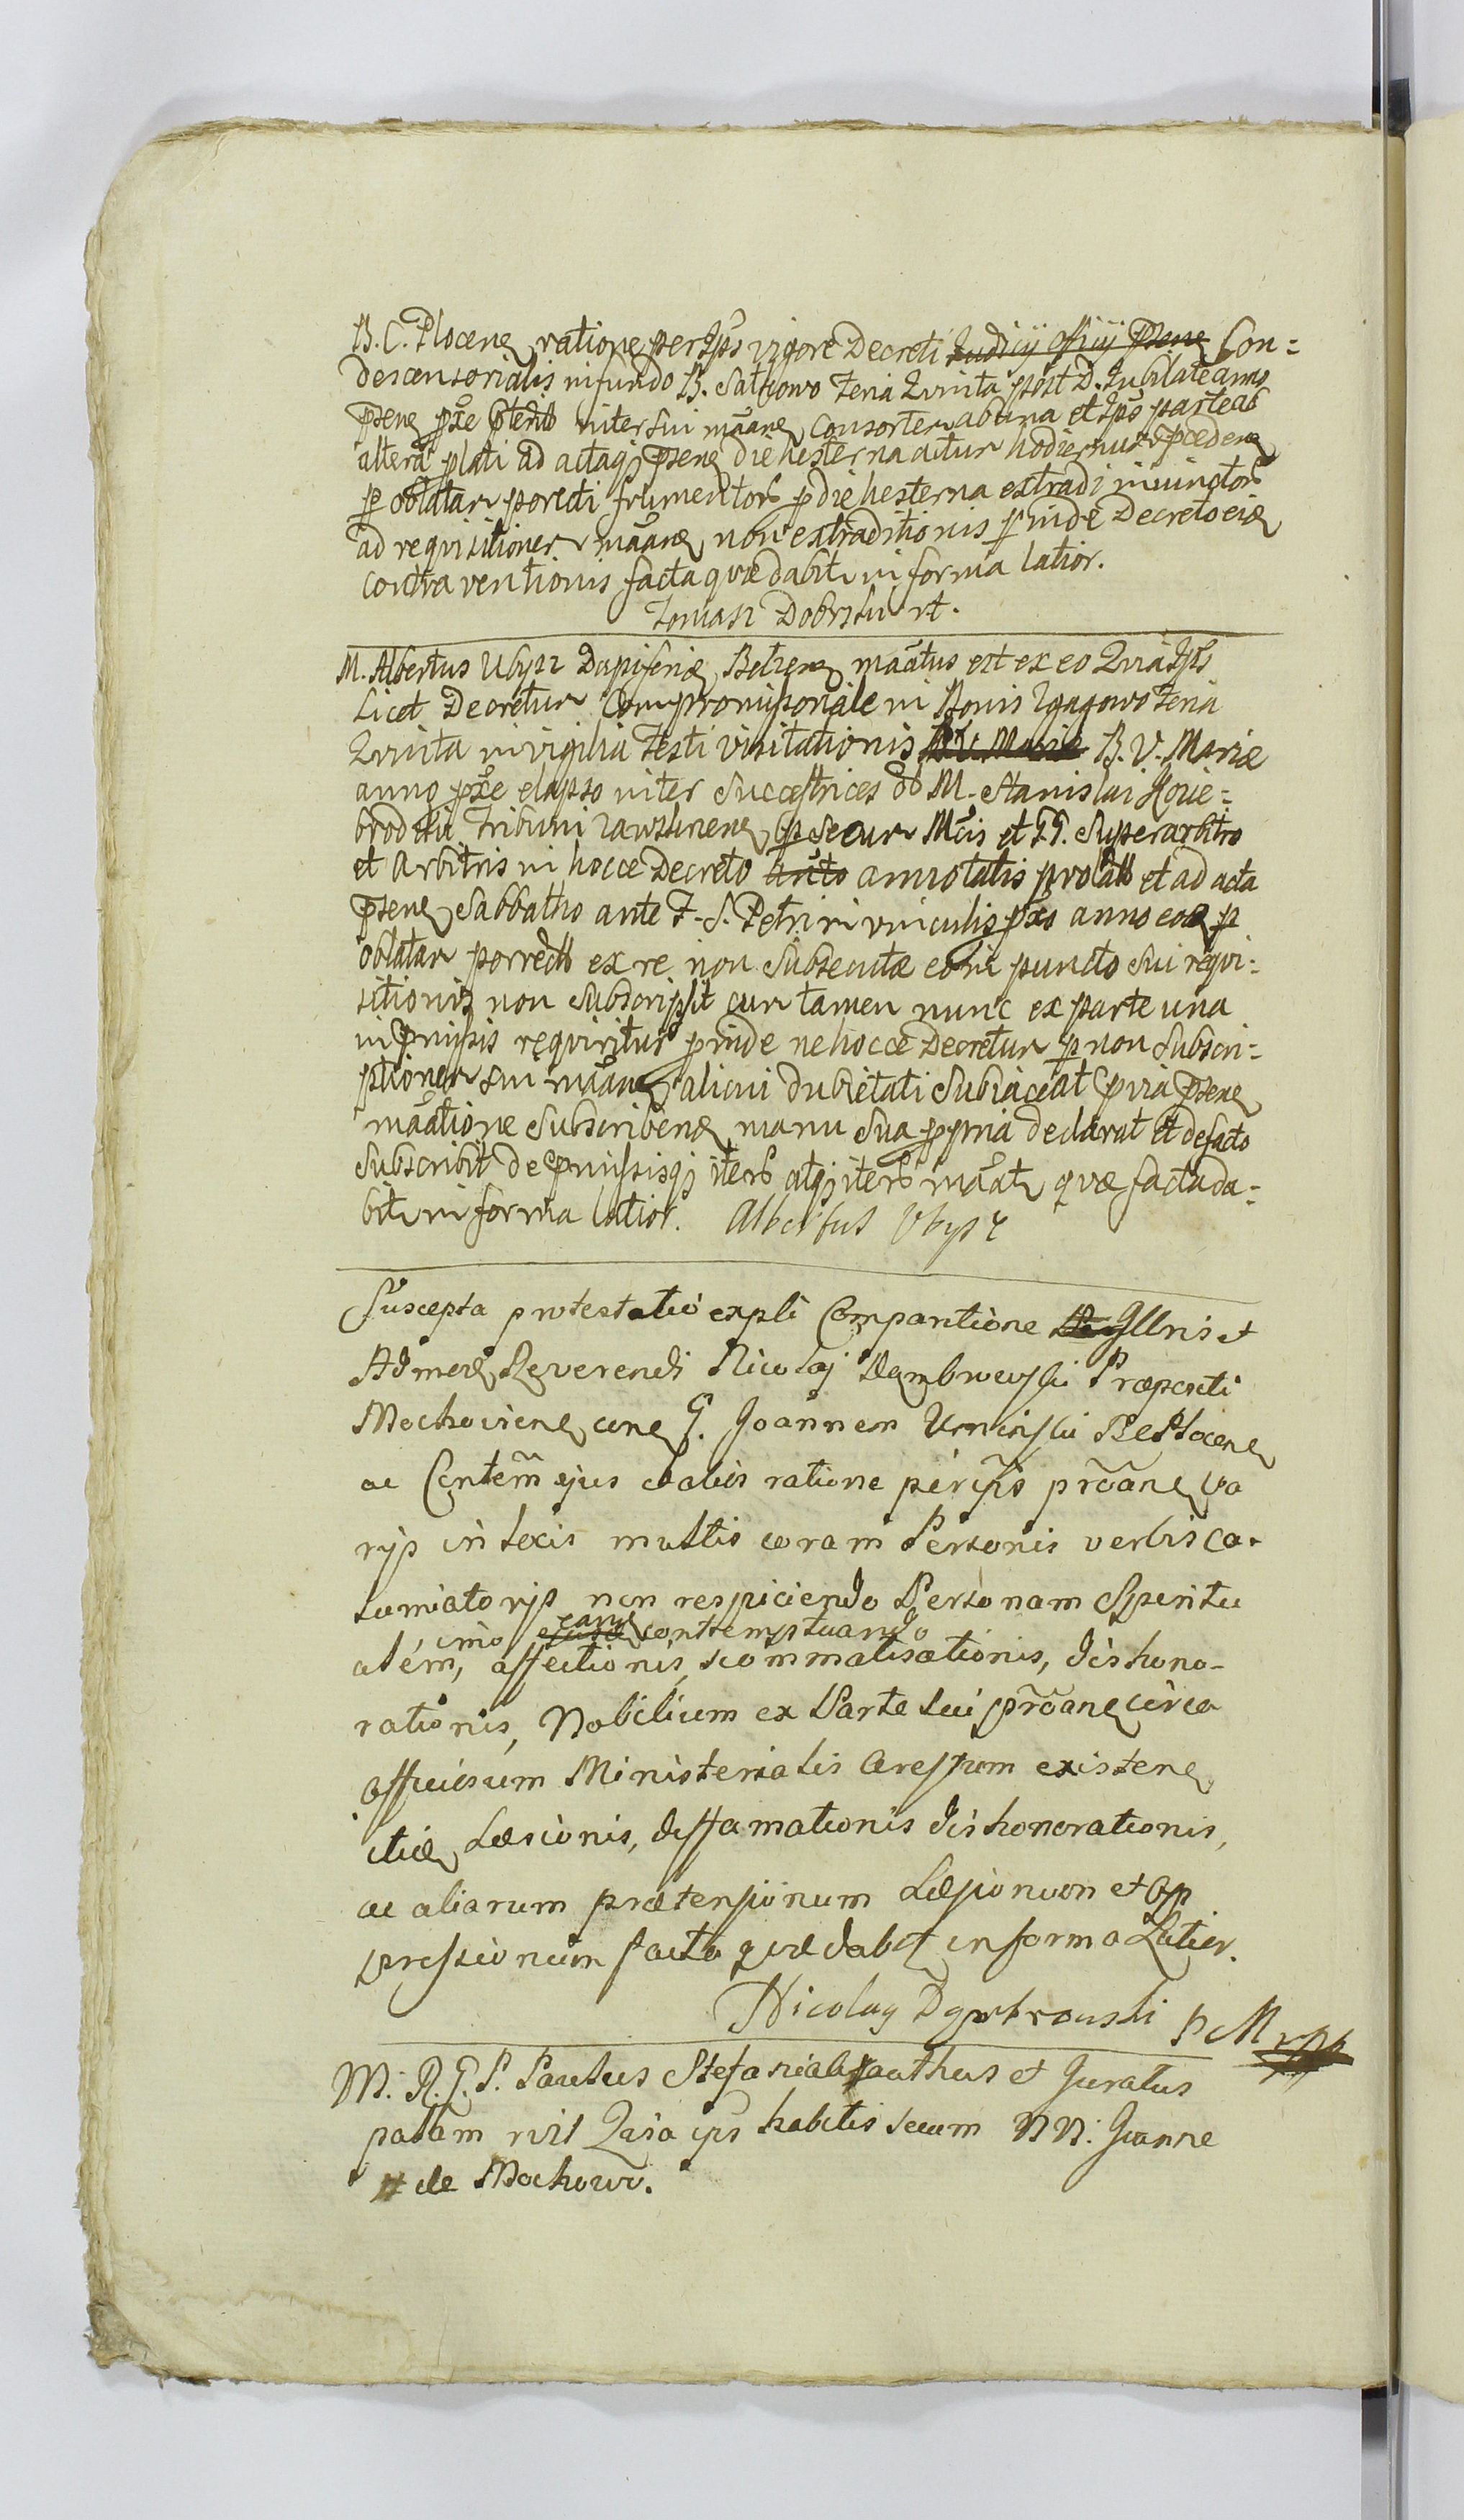 B. C. Plocens ratione per Ips vigore Decreti Judicij officij Psens Con=
descensorialis in fundo B. Satrowo Feria Quinta post D. Jubilate anno
psens pxe pterito inter sui maans Consortem ab una et Ips parte ab
altera plati ad actaqz Psens die hesterna actum hodiernum pcedens
p oblatam porrecti frumentorum p die hesterna extradi inuinctorum
ad requisitionem maans non extraditionis pinde Decreto eidem
contraventionis facta quae dabitur in forma latior.
Tomasz Dobrski mt.
M. Albertus Ubysz Dapiferides Belzens maatus est ex eo Quia Ips
Licet Decretum Compromissoriale in Bonis Zgagowo Feria
Quinta in vigilia Festi visitationis B. V. Mariae B. V. Mariae
anno pxe elapso inter Successtrices olim M. Stanislai Konie=
brodzki Tribuni Zawskrnens p secum Mcis et GG. Superarbitro
et Arbitris in hocce Decreto anto annotatis prolatum et ad acta
Psens Sabbatho ante F. S. Petri in vinculis pxo anno eodem p
oblatam porrectum ex re non Subsecutae eo in puncto sui requi=
sitionis non Subscripsit cum tamen nunc ex parte una
in pmissis requiritur pinde ne hocce Decretum p non Subscri=
ptionem sui maans alicui dubietati Subiaceat pvia psens
maatione Subscribens manu Sua ppria declarat et defacto
Subscribit de pmissisqz iterum atqz iterum maatur quae facta da=
bitur in forma latior. Albertus Ubysz
Suscepta protestatio expli Comparitione Illris et
Admodum Reverendi Nicolaj Dembrowski Praepositi
Mochoviens cons G. Joannem Uminski BCPlocens
ac Contem ejus ac alios ratione per ips proans va
rijs in locis multis coram Personis verbis ca-
lumiatorijs non respiciendo Personam Spiritu
imo eans contemptuando
alem, affectionis, scommatisationis, dishono-
rationis, Nobilium ex Parte sui proans circa
officiosum Ministerialis Arestum existens
itidem Laesionis, diffamationis dishonorationis,
ac aliarum praetensionum Laesionum et Op
pressionum facta quae dabit in forma Latior.
Nicolaus Dąmbrowski P M mp
M. R. G. P. Paulus Stefaniak authus et Juratus
palam rvit Quia ips habitis secum NN. Joanne
de Mochowo.